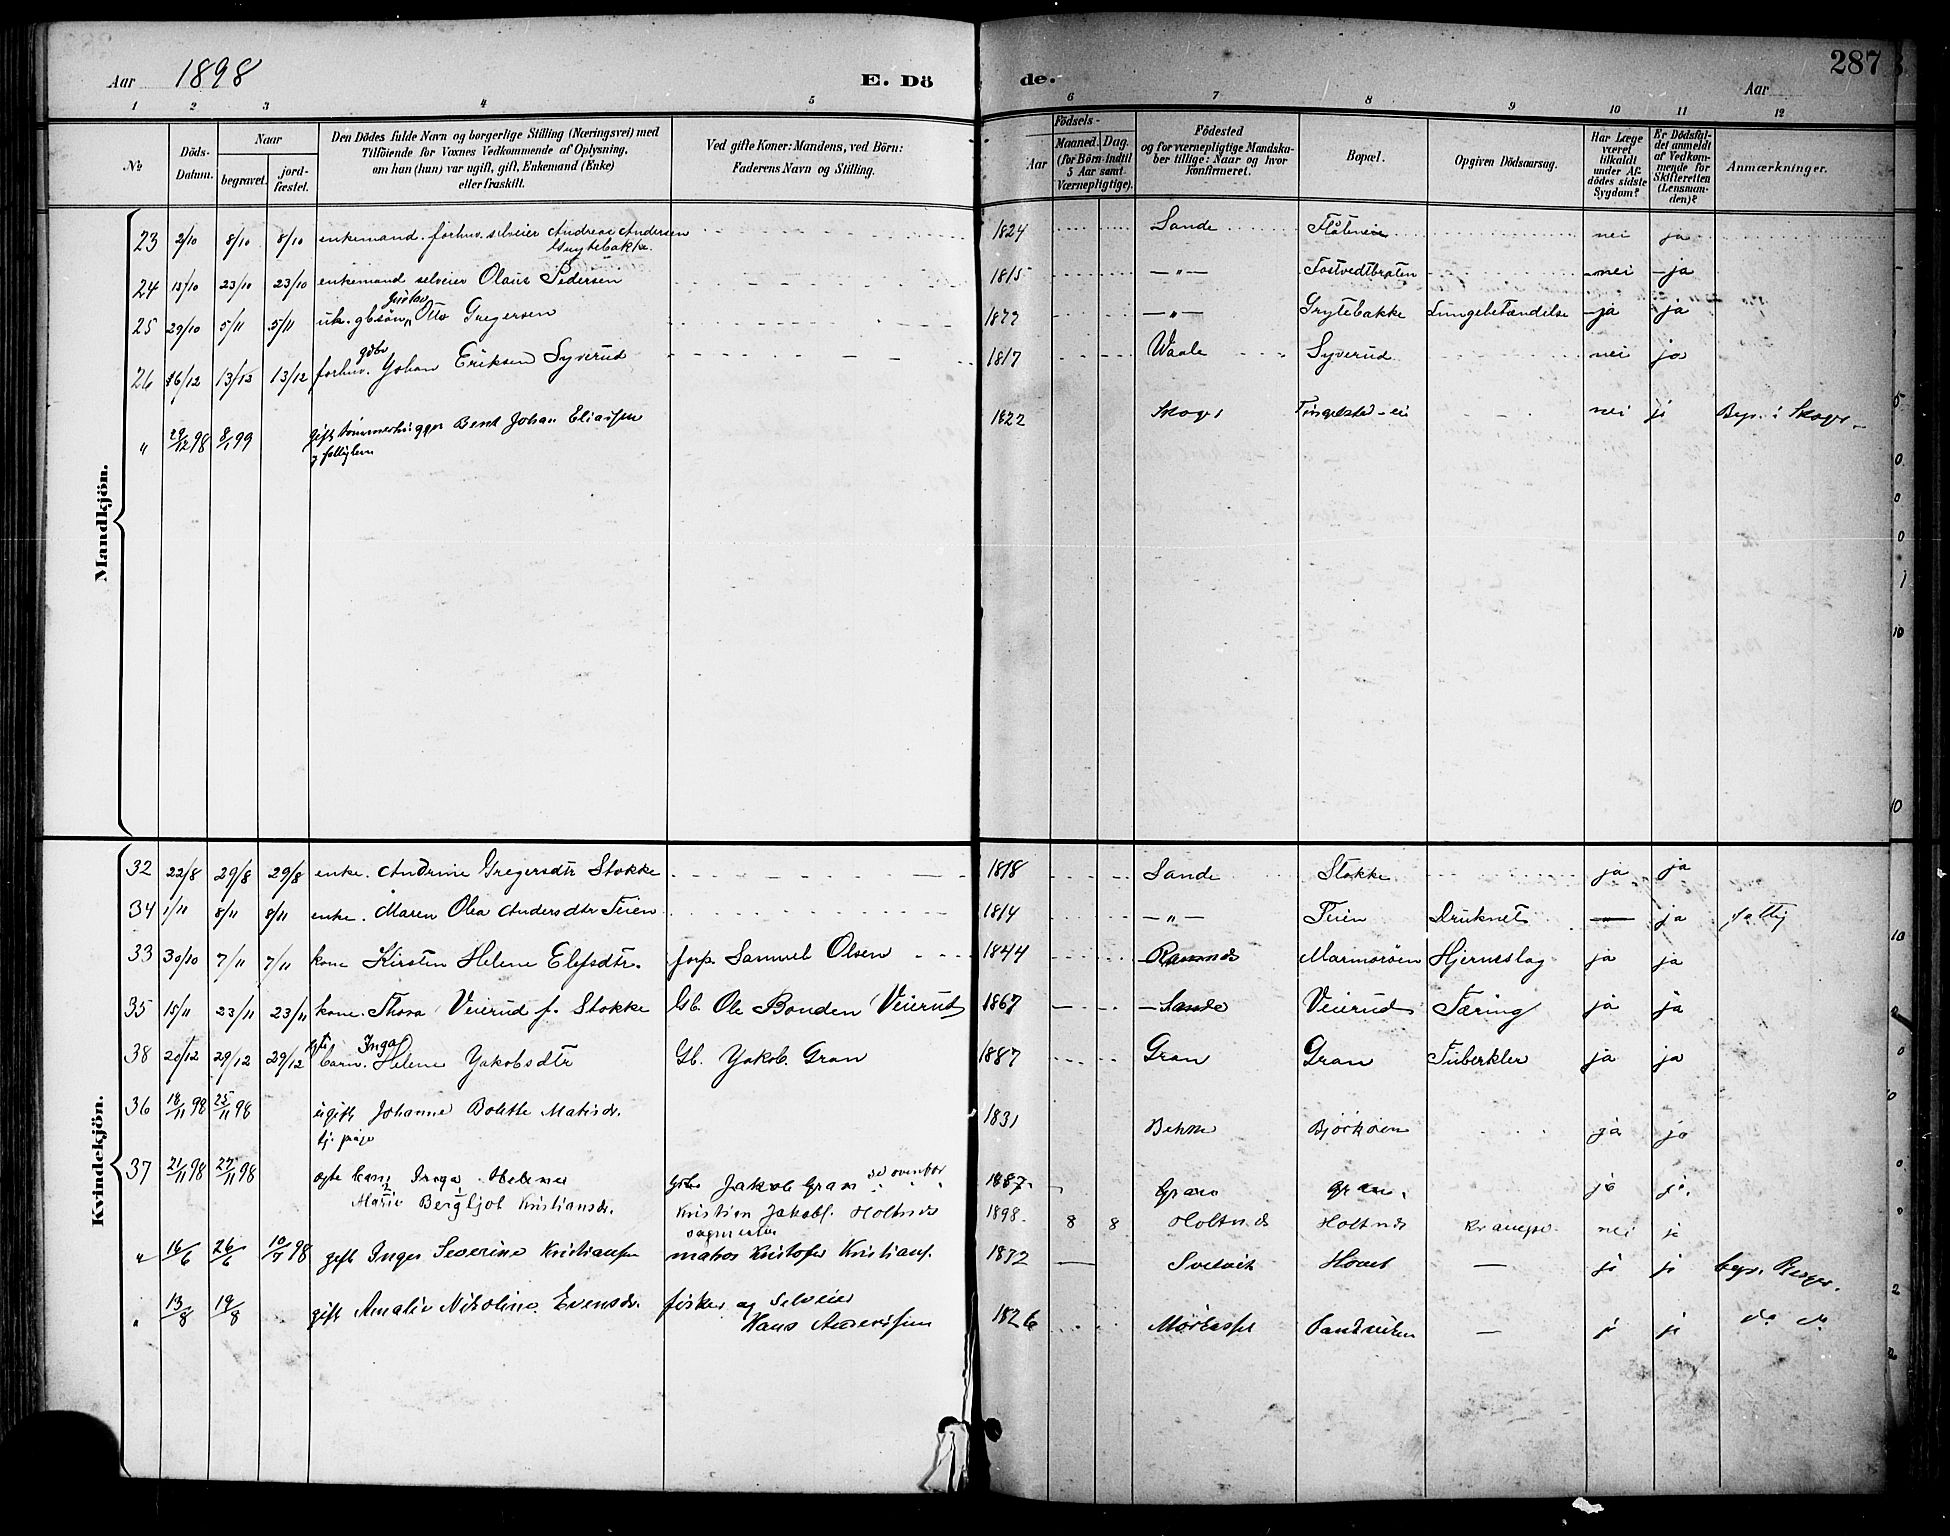 Aar 1898 E. Dö de. Aar 287
1 2 3 4 5 6 7 8 9 10 11 12
No
Döds-Datum.
Naar
begravet.
jord-fæstet.
Den Dödes fulde Navn og borgerlige Stilling (Næringsvei) med
Tilföiende for Voxnes Vedkommende af Oplysning,
om han (hun) var ugift, gift, Enkemand (Enke)
eller fraskilt.
Ved gifte Koner: Mandens, ved Börn:
Faderens Navn og Stilling.
Födsels-
Aar
Maaned. Dag.
(for Börn indtil
5 Aar samt
Værnepligtige).
Födested
og for værnepligtige Mandska-
ber tillige: Naar og hvor
konfirmeret.
Bopæl.
Opgiven Dödsaarsag.
Har Læge
været
tilkaldt
under Af-
dödes sidste
Sygdom?
Er Dödsfal-
det anmeldt
af Vedkom-
mende for
Skifteretten
(Lensman-
den)?
Anmærkninger.
Mandkjön.
23 2/10 8/10 8/10 enkemand. forhv. selveier Andreas Andersen 1824 Sande nei ja
Grytebakke.
24 13/10 23/10 23/10 enkemand selveier Olaus Pedersen 1815 — " — Tostvedtbraten nei ja
Gustav
25 29/10 5/11 5/11 uk. gbsön Otto Gregersen — " — Grytebakke Lungebetændelse ja ja
gdbr
26 6/12 13/12 13/12 forhv. Johan Eriksen Syverud 1817 Waale Syverud nei ja
" 29/12 98 8/1 99 gift tømmerhugger Bent Johan Eliassen 1822 Skoger nei ja Begr. i Skoger
Kvindekjön.
32 22/8 29/8 29/8 enke. Andrine Gregersdtr Stokke 1818 Sande Stokke ja ja
34 1/11 8/11 8/11 enke. Maren Olea Andersdtr Feien 1814 — " — Feien Druknet — ja fattig
33 30/10 7/11 7/11 kone Kirsten Helene Elefsdtr. forp. Samuel Olsen 1844 Ramnes Hjerneslag ja ja
35 15/11 23/11 23/11 kone. Thora Veierud f. Stokke Gb. Ole Bonden Veierud 1867 Sande Veierud Tæring ja ja
Inga
38 20/12 29/12 29/12 barn. Helene Jakobsdtr Gb. Jakob Gran 1887 Gran Gran Tuberkler ja ja
36 18/11 98 25/11 98 ugift Johanne Bolette Matisdr. 1831 Bjørkøen ja ja
tj. pige
37 21/11 98 27/11 98 ægte barn Inga Helene gdbr Jakob Gran se ovenfor 1887 Gran Gran ja ja.
Marie Bergljot Kristiansdr. Kristian Jakobs. Holtnes 1898 8 8 Holtnes Holtnes nei ja
" 16/6 26/6 10/7 98 gift Inger Severine Kristiansen matros Kristofer Kristians. 1872 — Svelvik Hovet — ja ja begr. Berger.
" 13/8 19/8 gift Amalie Nikoline Evensdr. fisker og Selveier 1826 — ja ja do do
Hans Anderssen